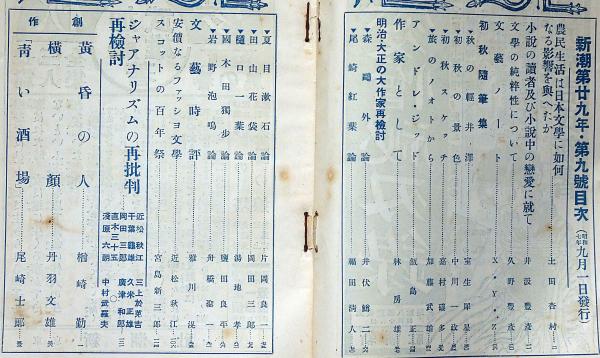 新潮第廿九年・第九號目次(昭和七年九月一日發行)
農民生活は日本文學に如何なる影響を與へたか 土田杏村
小說の讀者及び小說中の戀愛に就て 井汲豐彥
文學の純粹性について 久野豐彥
文藝ノート X・Y・Z
初秋隨筆集
秋の輕井澤 室生犀星
初秋の景色 中川一政
初秋スケッチ 嘉村礒多
旅のノオトから 加藤武雄
アンドレ・ジッド 飯島正
作家として 林房雄
明治・大正の大作家再檢討
森鷗外論 井伏鱒二
尾崎紅葉論 福田淸人
夏目漱石論 片岡良一
田山花袋論 岡田三郎
樋口一葉論 湯地孝
國木田獨步論 鹽田良平
岩野泡鳴論 舟橋聖一
文藝時評 雅川滉
安價なるファッショ文學 近松秋江
スコットの百年祭 宮島新三郎
ジャアナリズムの再批判再檢討
近松秋江 三上於菟吉
千葉龜雄 久米正雄
岡田三郎 廣津和郎
直木三十五
淺原六朗 中村武羅夫
創作
黃昏の人 楢崎勤
橫顏 丹羽文雄
「靑い酒場」 尾崎士郎